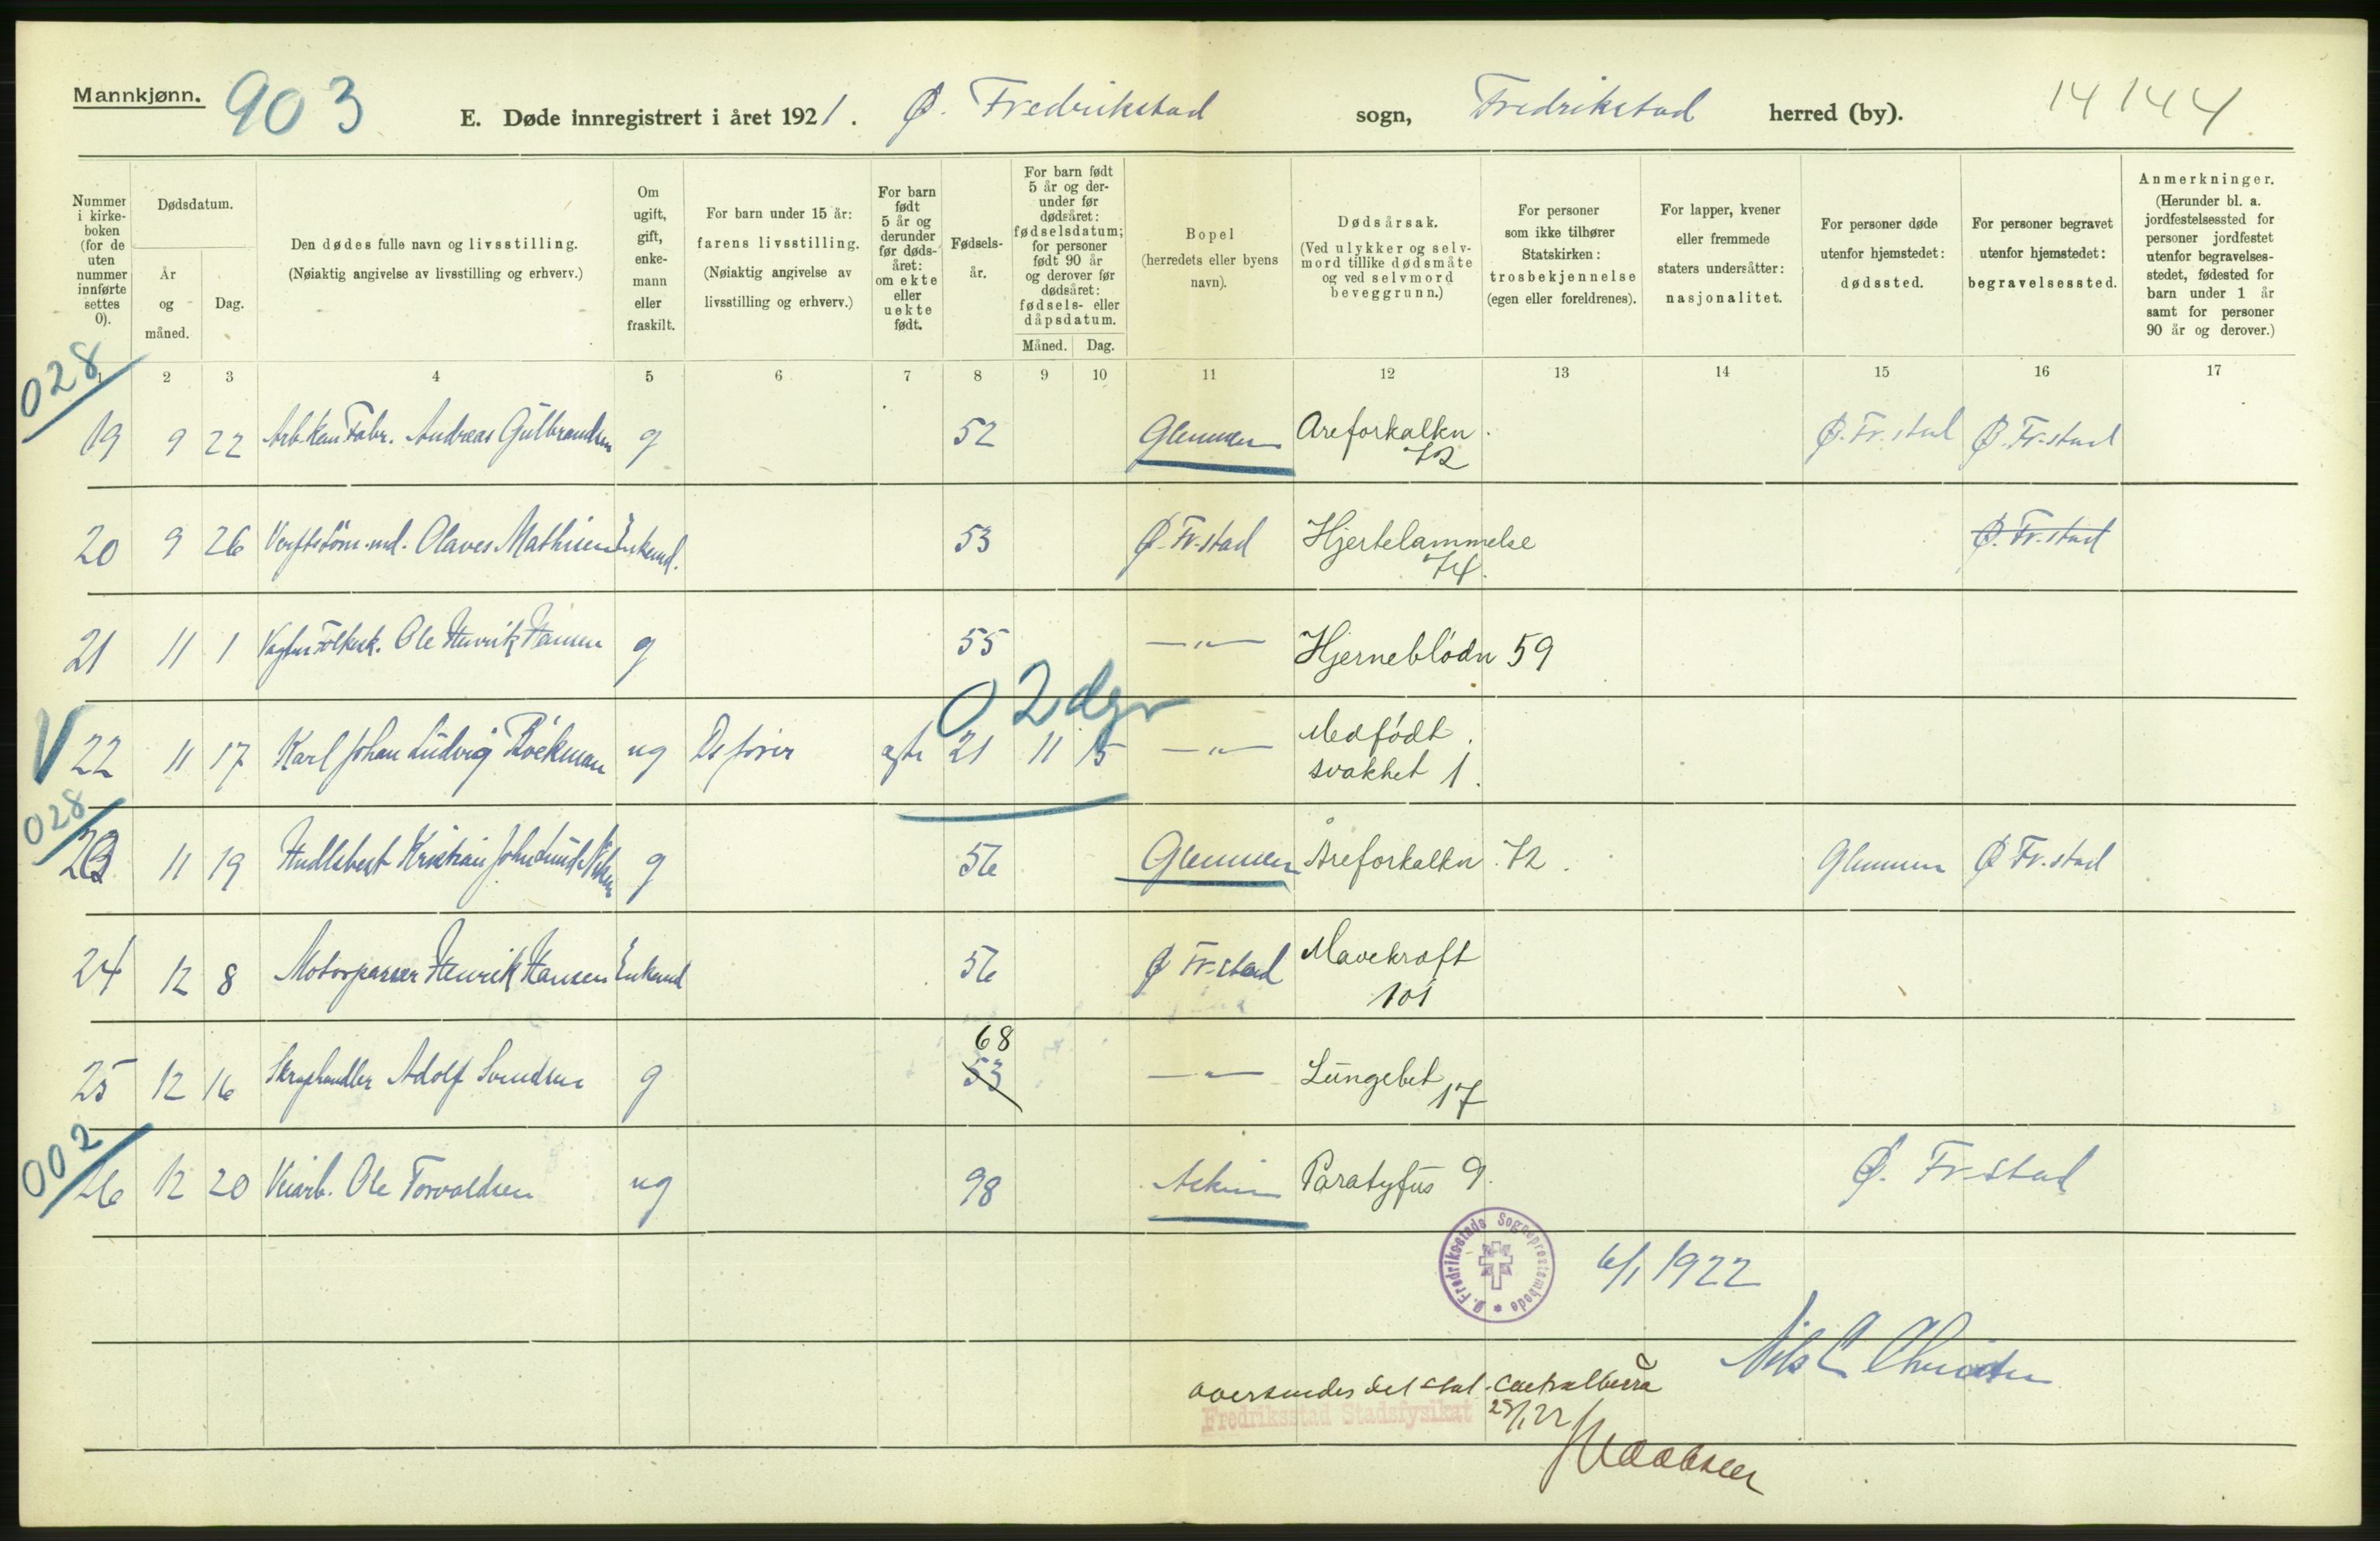 Mannkjønn. 903
E. Døde innregistrert i året 1921. Ø. Fredrikstad sogn, Fredrikstad herred (by). 14144
Nummer i kirkeboken (for de uten nummer innførte settes 0).
Dødsdatum.
År og måned.
Dag.
Den dødes fulle navn og livsstilling. (Nøiaktig angivelse av livsstilling og erhverv.)
Om ugift, gift, enkemann eller fraskilt.
For barn under 15 år: farens livsstilling. (Nøiaktig angivelse av livsstilling og erhverv.)
For barn født 5 år og derunder før dødsåret: om ekte eller uekte født.
Fødselsår.
For barn født 5 år og derunder før dødsåret: fødselsdatum; for personer født 90 år og derover før dødsåret: fødsels- eller dåpsdatum.
Måned. Dag.
Bopel (herredets eller byens navn).
Dødsårsak. (Ved ulykker og selvmord tillike dødsmåte og ved selvmord beveggrunn.)
For personer som ikke tilhører Statskirken: trosbekjennelse (egen eller foreldrenes).
For lapper, kvener eller fremmede staters undersåtter: nasjonalitet.
For personer døde utenfor hjemstedet: dødssted.
For personer begravet utenfor hjemstedet: begravelsessted.
Anmerkninger. (Herunder bl. a. jordfestelsessted for personer jordfestet utenfor begravelsesstedet, fødested for barn under 1 år samt for personer 90 år og derover.)
1 2 3 4 5 6 7 8 9 10 11 12 13 14 15 16 17
028
19 9 22 Fabr. Andreas Gulbrandsen g 52 Glemmen Areforkalkn. 72 Ø. Fr.stad Ø. Fr.stad
20 9 26 Olaves Mathisen Enkemd. 53 Ø. Fr.stad Hjertelammelse 74. Ø. Fr.stad
21 11 1 Ole Henrik Hansen g 55 —„— Hjerneblødn 59
02 dgr
V 22 11 17 Karl Johan Ludvig Bøckman ug ekte 21 11 15 —„— Medfødt svakhet 1.
028
23 11 19 Kristian g 56 Glemmen Åreforkalkn. 72. Glemmen Ø Fr.stad
24 12 8 Motorpasser Henrik Hansen Enkemd 56 Ø Fr.stad Mavekræft 101
68
25 12 16 Skraphandler Adolf Svendsen g 53 —„— Lungebet 17
002
26 12 20 Veiarb. Ole Torvaldsen ug 98 Askim Paratyfus 9. Ø. Fr.stad
Ø. Fredriksstads Sogneprestembede
6/1 1922
Nils C
oversendes det stat. Centralbyrå
Fredriksstad Stadsfysikat